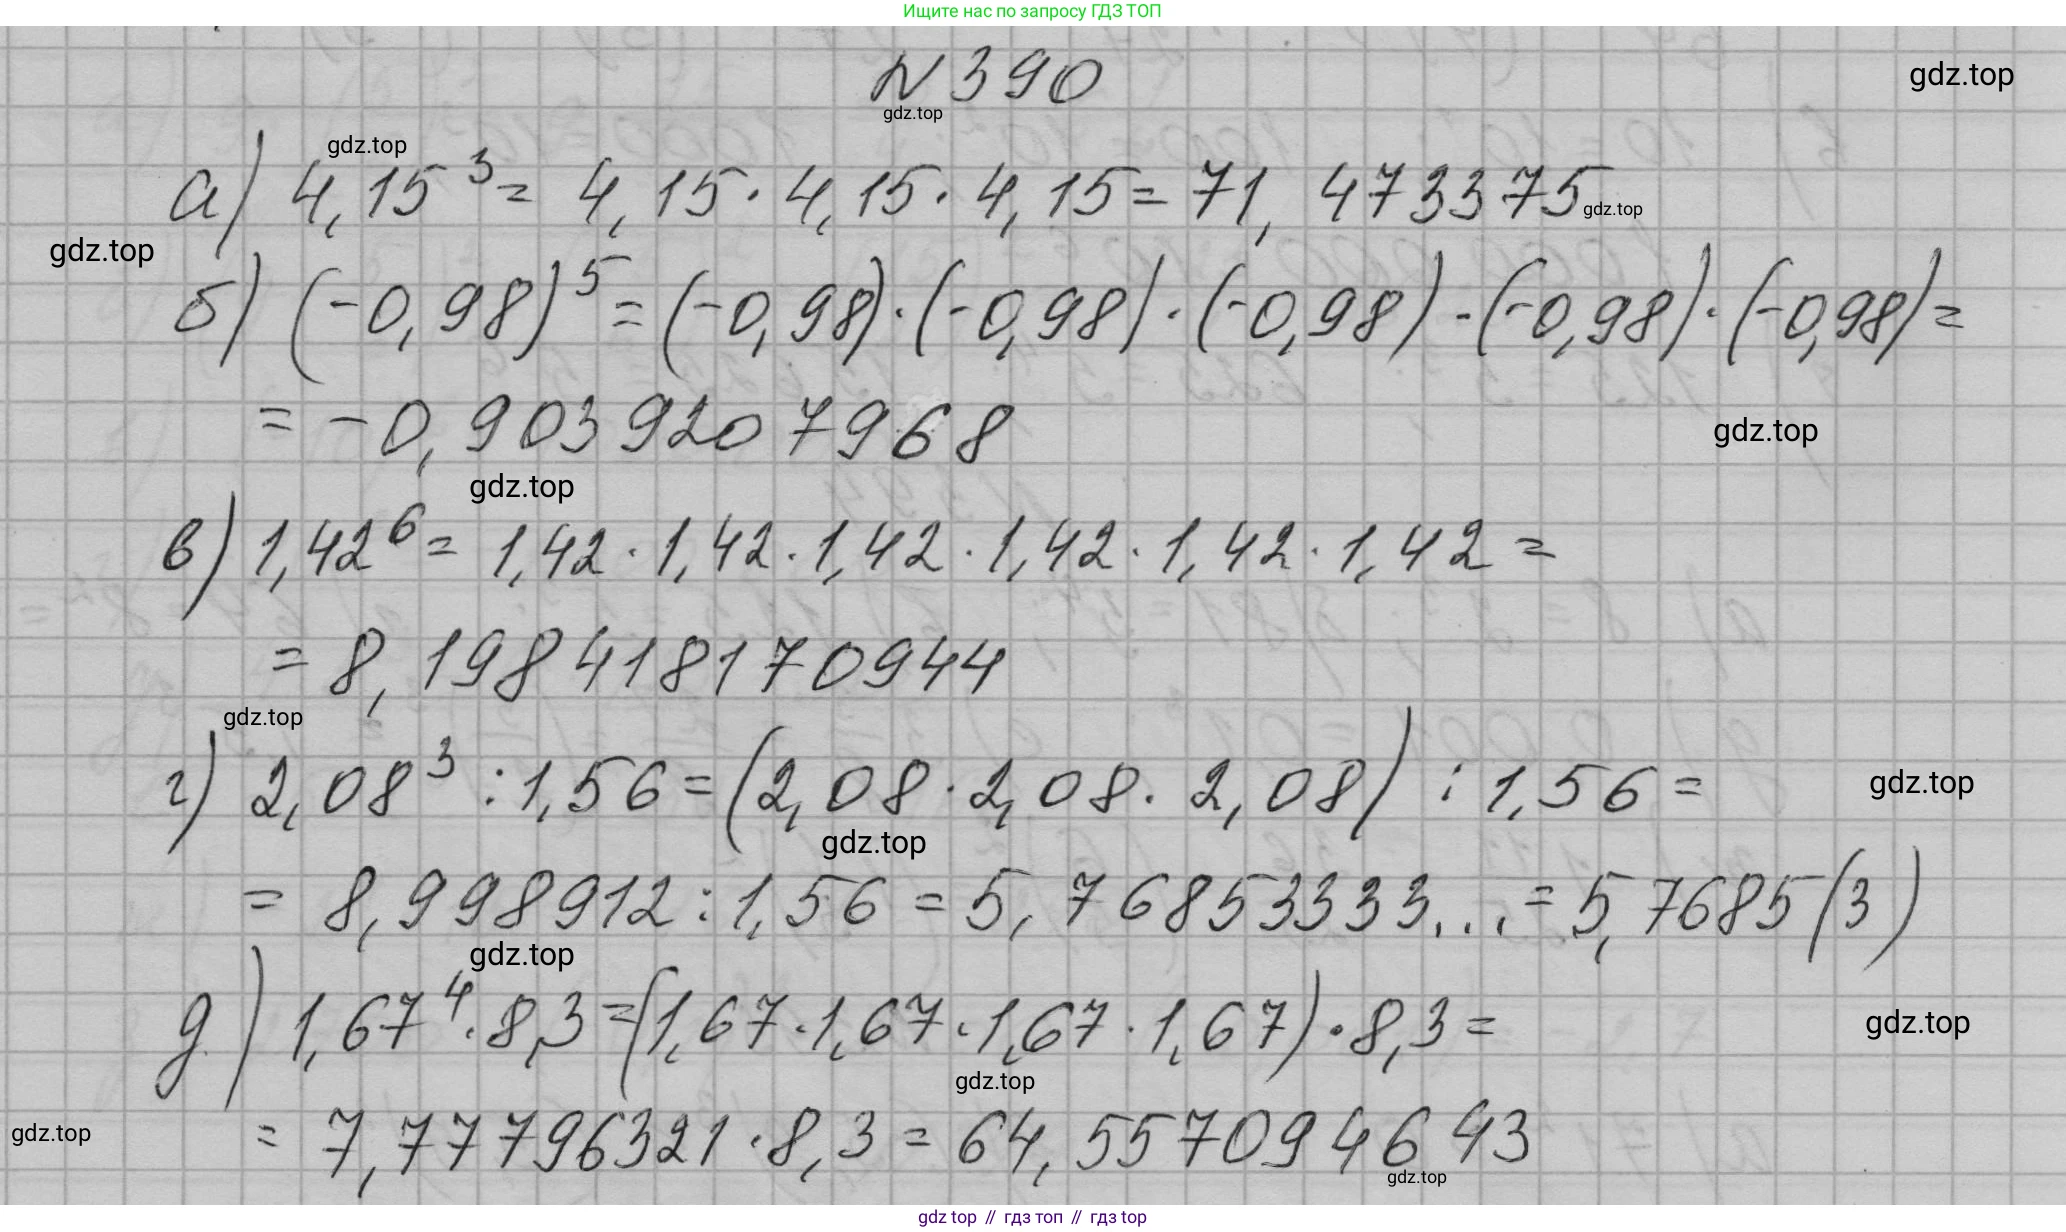 Ищите нас по запросу ГДЗ ТОП
N 390
gdz.top
gdz.top
gdz.top
а) 4,15³ = 4,15 · 4,15 · 4,15 = 71,473375
gdz.top
gdz.top
б) (-0,98)⁵ = (-0,98) · (-0,98) · (-0,98) · (-0,98) · (-0,98) =
= -0,9039207968
gdz.top
gdz.top
в) 1,42⁶ = 1,42 · 1,42 · 1,42 · 1,42 · 1,42 · 1,42 =
= 8,198418170944
gdz.top
г) 2,08³ : 1,56 = (2,08 · 2,08 · 2,08) : 1,56 =
gdz.top
gdz.top
= 8,998912 : 1,56 = 5,76853333... = 5,7685(3)
gdz.top
д) 1,67⁴ · 8,3 = (1,67 · 1,67 · 1,67 · 1,67) · 8,3 =
gdz.top
gdz.top
gdz.top
= 7,77796321 · 8,3 = 64,557094643
gdz.top
gdz top // гдз топ // гдз top